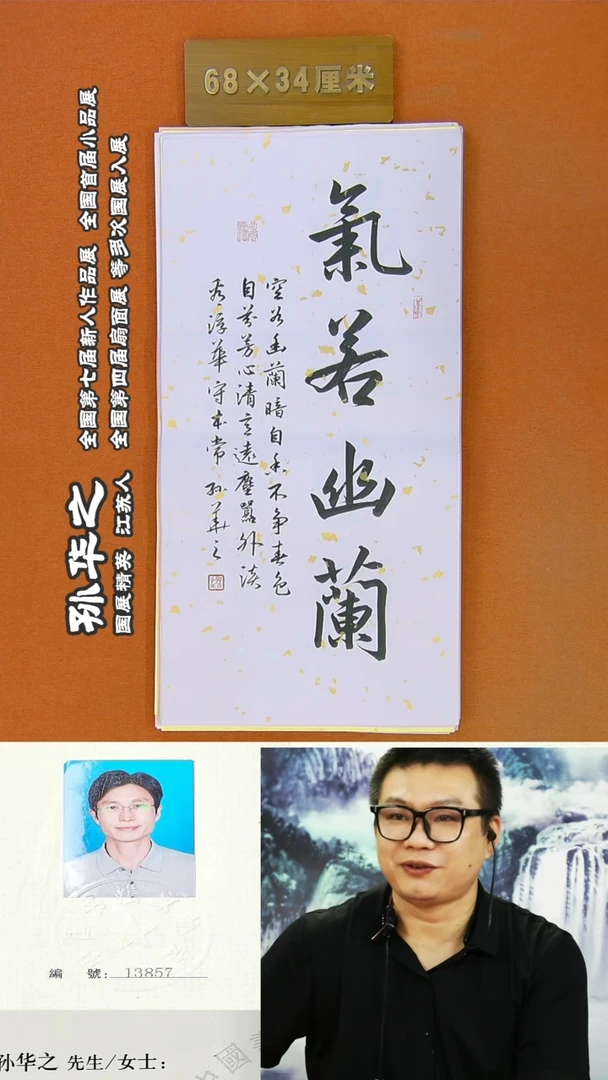 68×34厘米
氣若幽蘭
空谷幽蘭暗自香不争春色
自芬芳心清遠塵囂外淡
看浮華守本常 孙華之
孙华之
全国第七届新人作品展 全国首届小品展
国展精英 江苏人 全国第四届扇面展 等多次国展入展
編 號: 13857
孙华之 先生/女士:
中國書